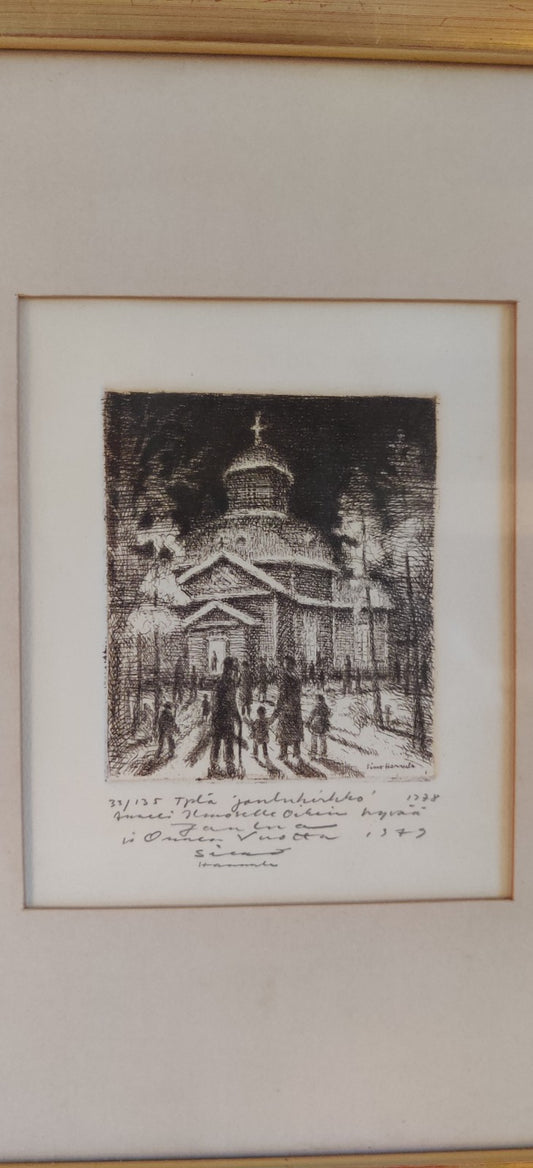 Simo Hannula
33/135 Tpl'a 'jouluhirkko' 1978
Anneli Ilmoselle Oikein hyvää
Joulua
ja Onnea Vuotta 1979
Simo
Hannula